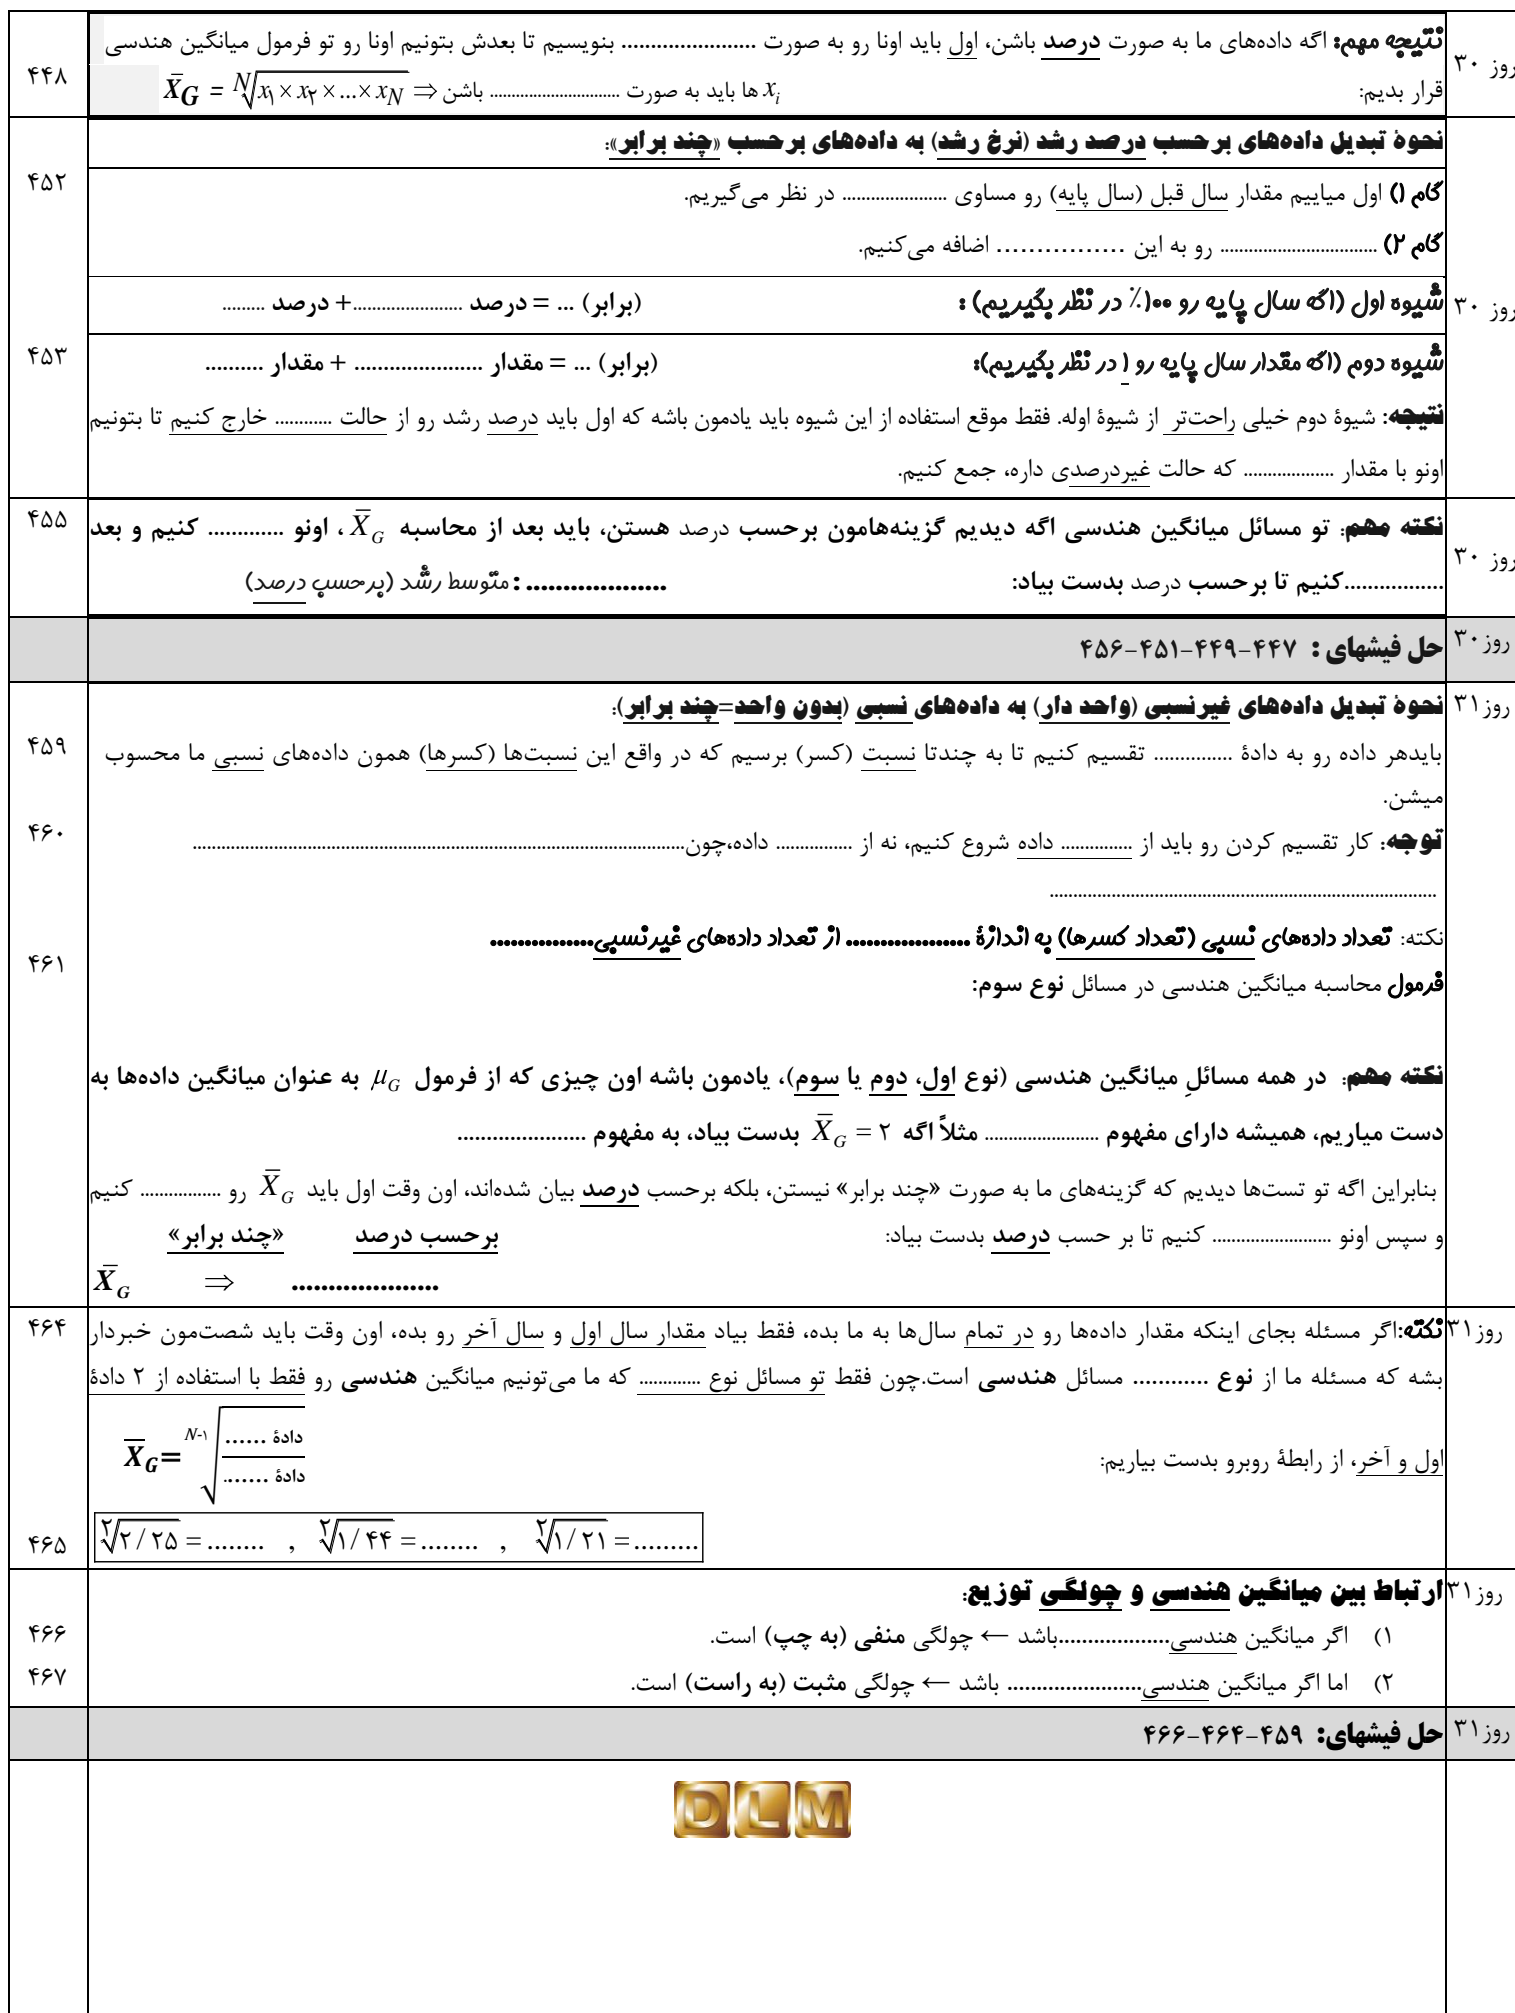 روز ۳۰
نتیجه مهم: اگه داده‌های ما به صورت درصد باشن، اول باید اونا رو به صورت ....................... بنویسیم تا بعدش بتونیم اونا رو تو فرمول میانگین هندسی
قرار بدیم: xᵢ ها باید به صورت ............................ باشن ⇒ X̄G = N√(x۱ × x۲ × ... × xN)
۴۴۸
نحوۀ تبدیل داده‌های بر حسب درصد رشد (نرخ رشد) به داده‌های بر حسب «چند برابر»:
۴۵۲
گام ۱) اول میاییم مقدار سال قبل (سال پایه) رو مساوی ...................... در نظر می‌گیریم.
گام ۲) ................................. رو به این ................ اضافه می‌کنیم.
روز ۳۰
شیوه اول (اگه سال پایه رو ۱۰۰٪ در نظر بگیریم) : (برابر) ... = درصد .......................+ درصد .........
۴۵۳
شیوه دوم (اگه مقدار سال پایه رو ۱ در نظر بگیریم): (برابر) ... = مقدار ...................... + مقدار ..........
نتیجه: شیوۀ دوم خیلی راحت‌تر از شیوۀ اوله. فقط موقع استفاده از این شیوه باید یادمون باشه که اول باید درصد رشد رو از حالت ............ خارج کنیم تا بتونیم
اونو با مقدار ................... که حالت غیردرصدی داره، جمع کنیم.
روز ۳۰
۴۵۵
نکته مهم: تو مسائل میانگین هندسی اگه دیدیم گزینه‌هامون برحسب درصد هستن، باید بعد از محاسبه X̄G ، اونو ............. کنیم و بعد
.................کنیم تا برحسب درصد بدست بیاد: ................... : متوسط رشد (برحسب درصد)
روز ۳۰
حل فیشهای : ۴۴۷-۴۴۹-۴۵۱-۴۵۶
روز ۳۱
نحوۀ تبدیل داده‌های غیرنسبی (واحد دار) به داده‌های نسبی (بدون واحد=چند برابر):
۴۵۹
بایدهر داده رو به دادۀ ................ تقسیم کنیم تا به چندتا نسبت (کسر) برسیم که در واقع این نسبت‌ها (کسرها) همون داده‌های نسبی ما محسوب
میشن.
۴۶۰
توجه: کار تقسیم کردن رو باید از ............... داده شروع کنیم، نه از ................ داده،چون.......................................................................................................
.................................................................................
نکته: تعداد داده‌های نسبی (تعداد کسرها) به اندازۀ ................... از تعداد داده‌های غیرنسبی................
۴۶۱
فرمول محاسبه میانگین هندسی در مسائل نوع سوم:
نکته مهم: در همه مسائلِ میانگین هندسی (نوع اول، دوم یا سوم)، یادمون باشه اون چیزی که از فرمول μG به عنوان میانگین داده‌ها به
دست میاریم، همیشه دارای مفهوم ........................ مثلاً اگه X̄G = ۲ بدست بیاد، به مفهوم ......................
بنابراین اگه تو تست‌ها دیدیم که گزینه‌های ما به صورت «چند برابر» نیستن، بلکه برحسب درصد بیان شده‌اند، اون وقت اول باید X̄G رو ................. کنیم
و سپس اونو ......................... کنیم تا بر حسب درصد بدست بیاد: برحسب درصد «چند برابر»
X̄G ⇒ ....................
روز ۳۱
۴۶۴
نکته:اگر مسئله بجای اینکه مقدار داده‌ها رو در تمام سال‌ها به ما بده، فقط بیاد مقدار سال اول و سال آخر رو بده، اون وقت باید شصت‌مون خبردار
بشه که مسئله ما از نوع ............ مسائل هندسی است.چون فقط تو مسائل نوع ............. که ما می‌تونیم میانگین هندسی رو فقط با استفاده از ۲ دادۀ
اول و آخر، از رابطۀ روبرو بدست بیاریم: X̄G = N-۱√(دادۀ ...... / دادۀ .......)
۴۶۵
۲√۲/۲۵ = ........ , ۲√۱/۴۴ = ........ , ۲√۱/۲۱ = .........
روز ۳۱
ارتباط بین میانگین هندسی و چولگی توزیع:
۴۶۶
۱) اگر میانگین هندسی...................باشد ← چولگی منفی (به چپ) است.
۴۶۷
۲) اما اگر میانگین هندسی....................... باشد ← چولگی مثبت (به راست) است.
روز ۳۱
حل فیشهای: ۴۵۹-۴۶۴-۴۶۶
DLM